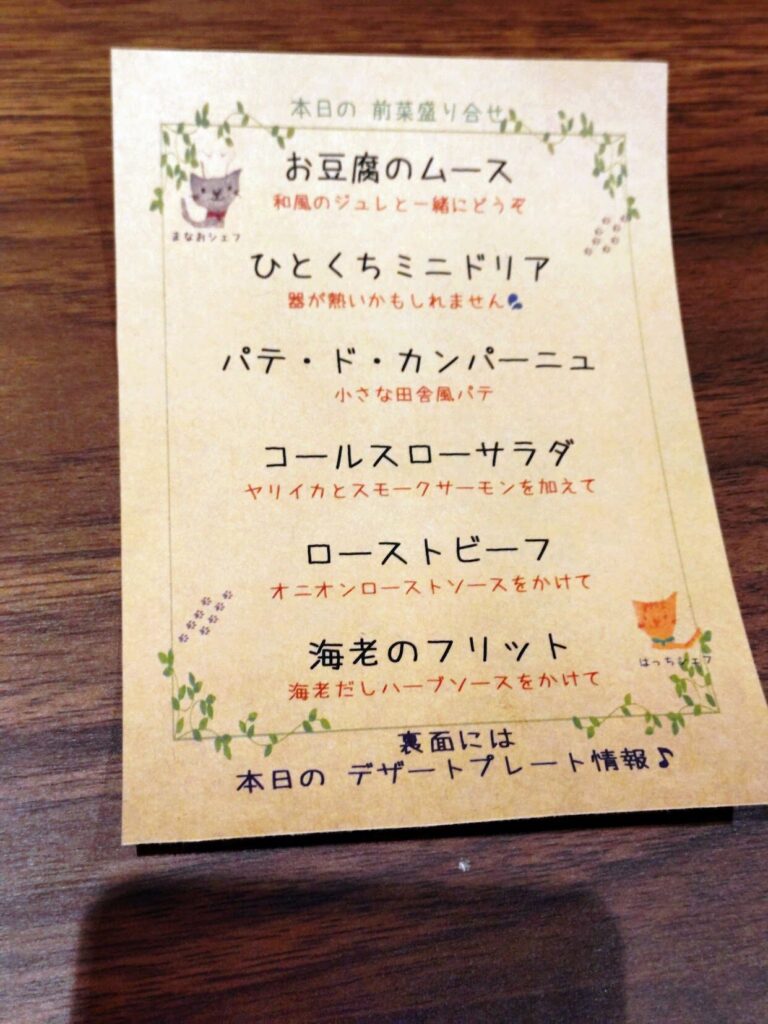 本日の 前菜盛り合せ
お豆腐のムース
和風のジュレと一緒にどうぞ
まなおシェフ
ひとくちミニドリア
器が熱いかもしれません💦
パテ・ド・カンパーニュ
小さな田舎風パテ
コールスローサラダ
ヤリイカとスモークサーモンを加えて
ローストビーフ
オニオンローストソースをかけて
海老のフリット
はっちシェフ
海老だしハーブソースをかけて
裏面には
本日の デザートプレート情報♪